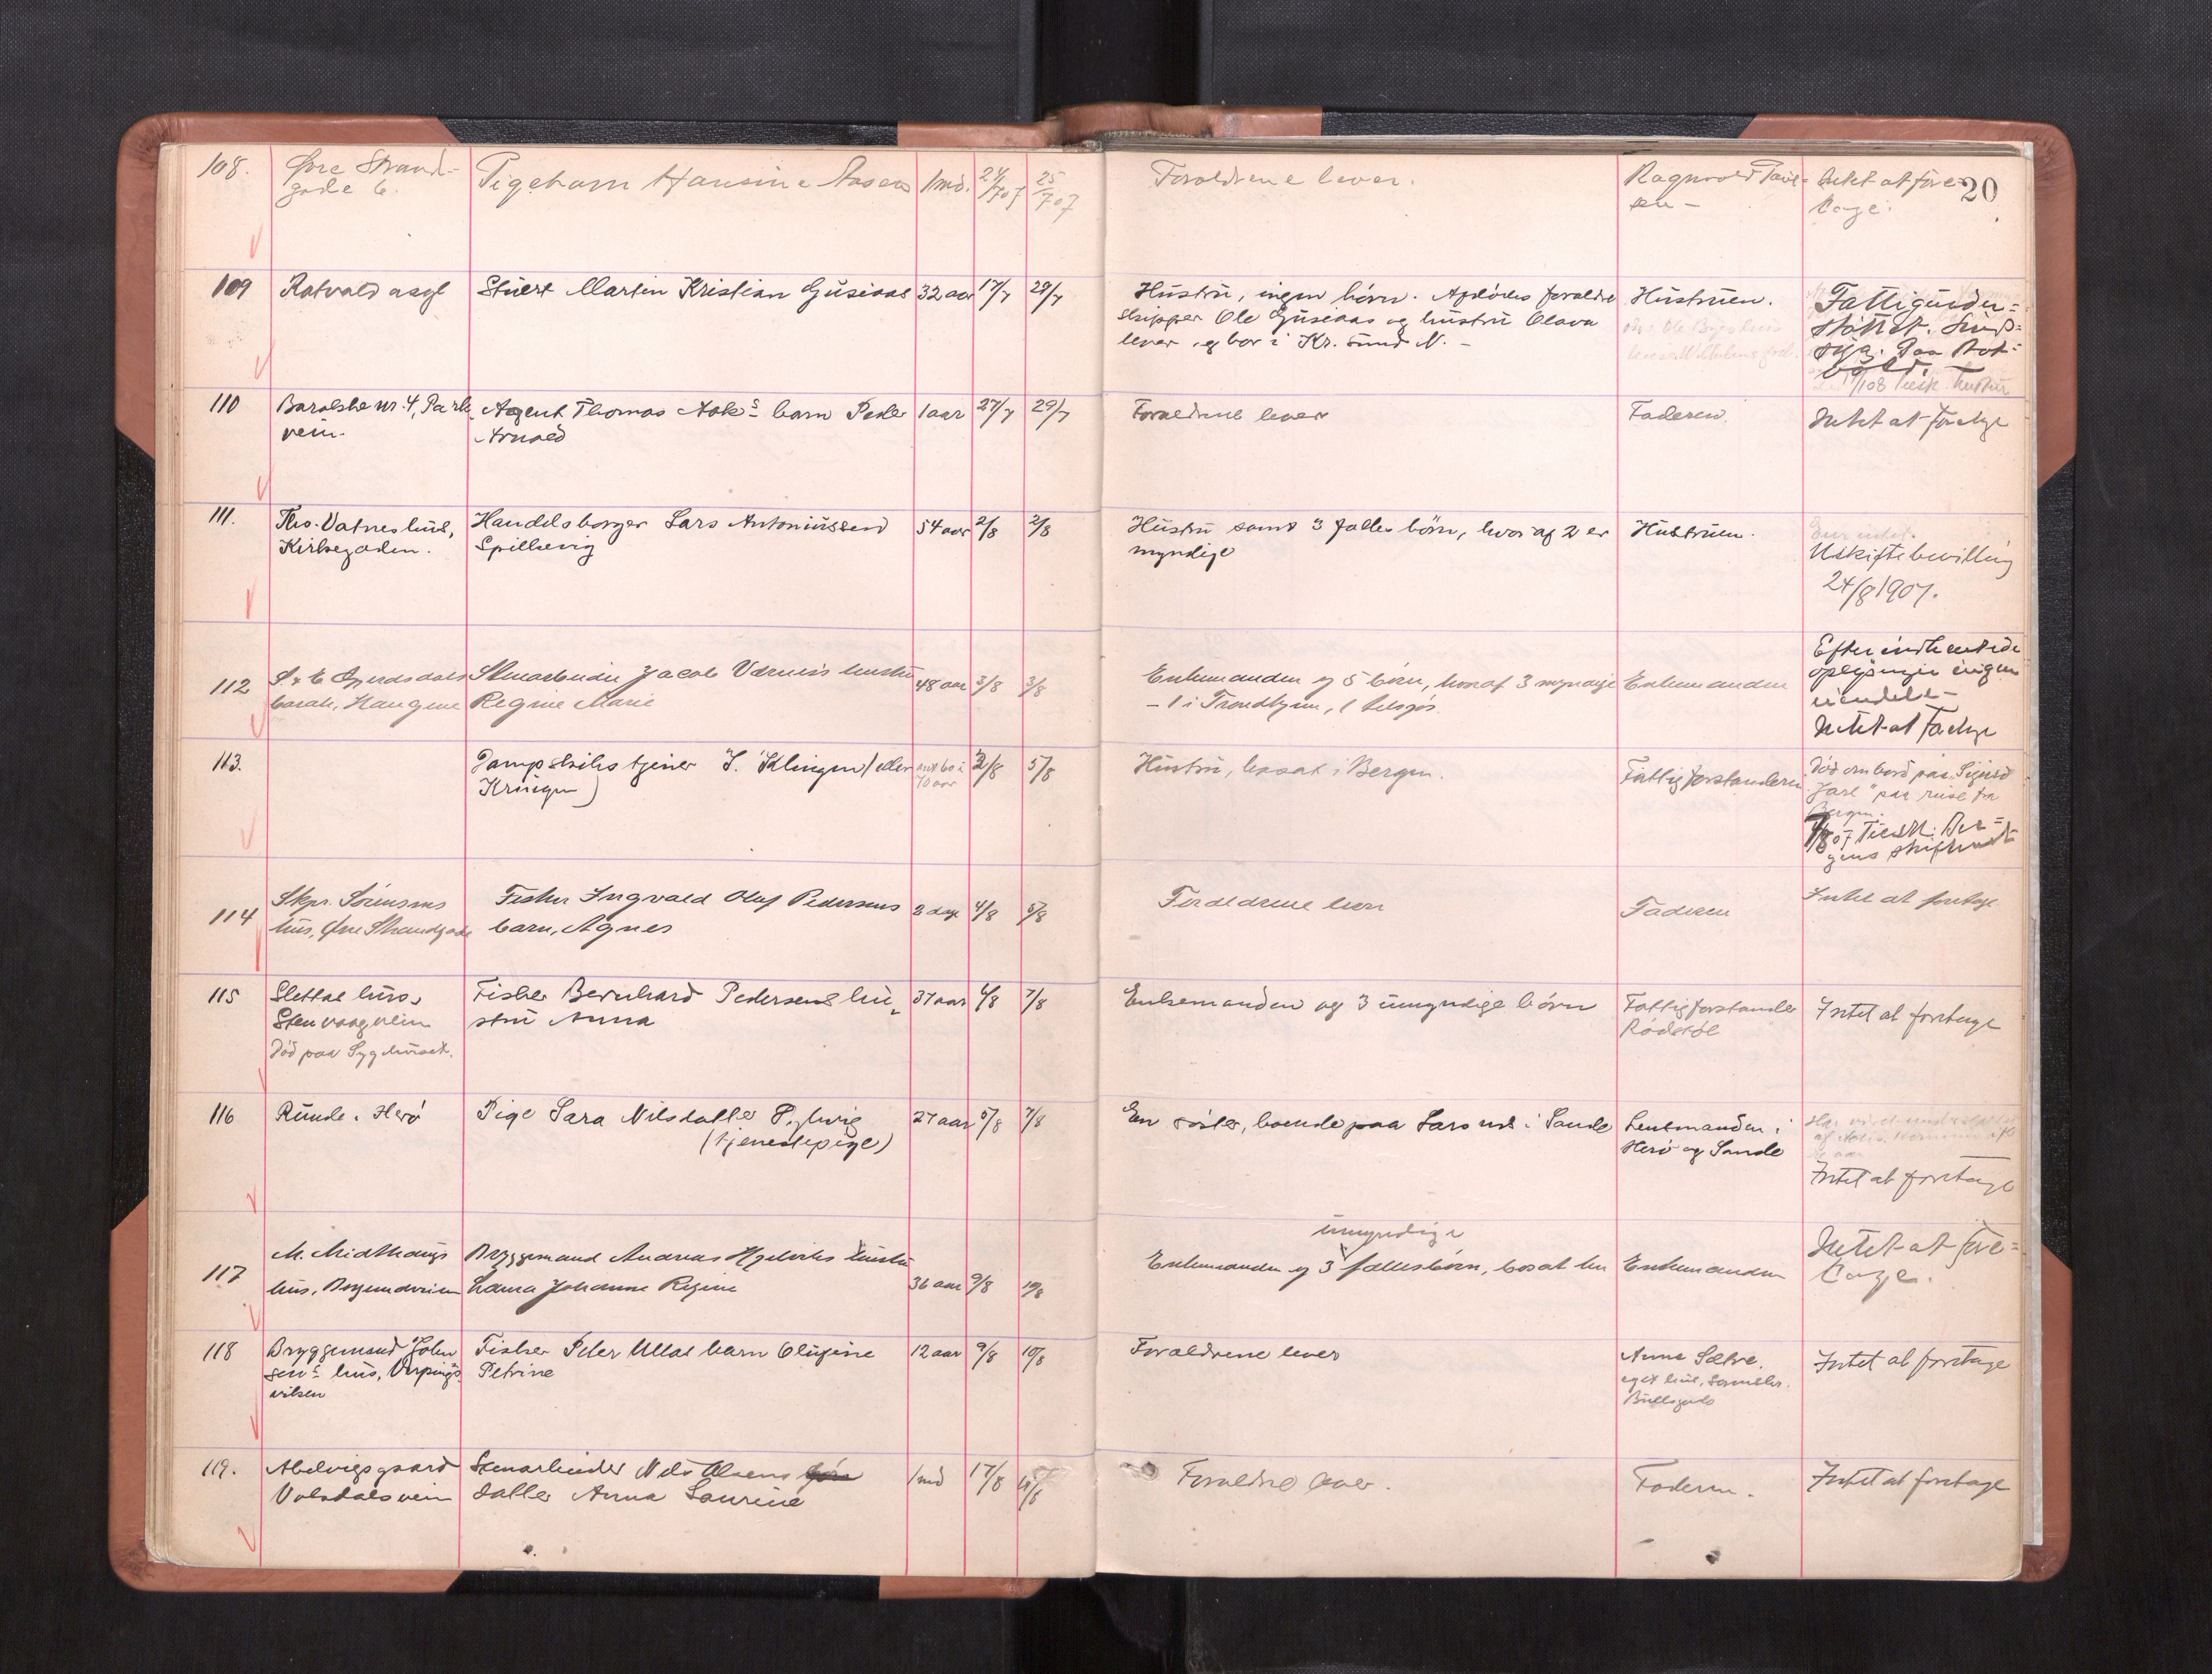 20
108.
Øvre Strand-
gade 6.
Pigebarn Hansine Aasen
1 md.
24/7 07
25/7 07
Forældrene lever.
Ragnvald
sen -
Intet at fore-
tage.
109
Rotvold asyl
Stuert Martin Kristian Gusiaas
32 aar
17/7
28/7
Hustru, ingen börn. Afdödes forældre
skipper Ole Gusiaas og hustru Olava
lever og bor i Kr.sund N. -
Hustruen.
Fattigunder-
støttet. Sinds-
syg. Paa Rot-
vold.
110
Barakke nr. 4, Park
vein.
Agent Thomas Aak's barn Peder
Arnold
1 aar
27/7
29/7
Forældrene lever
Faderen.
Intet at foretage
111.
Tho. Vatnes hus,
Kirkegaden.
Handelsborger Lars Antoniussen
Spilkevig
54 aar
2/8
2/8
Hustru samt 3 fælles börn, hvoraf 2 er
myndige
Hustruen.
Uskiftebevilling
24/8 1907.
112
barak, Haugene
Stenarbeider Jacob hustru
Regine Marie
48 aar
3/8
3/8
Enkemanden og 5 börn, hvoraf 3 myndige
- 1 i Trondhjem, 1 tilsjös.
Enkemanden
Efter indhentede
oplysninger ingen
eiendele -
Intet at foretage
113.
Dampskibstjener J. Klingen (eller
Kringen)
ant. 60 à
70 aar
3/8
5/8
Hustru, bosat i Bergen.
Fattigforstanderen
Död ombord paa "Sigurd
Jarl" paa reise fra
Bergen.
7/8 07 Tilskr. Ber-
gens skifteret
114
Skpr. Sörensens
hus, Øvre Strandgade
Fisker Ingvald Olaf Pedersens
barn, Agnes
2 dage
4/8
5/8
Forældrene lever
Faderen
Intet at foretage
115
Slettas hus,
Stenvaagveien
Död paa Sygehuset.
Fisker Bernhard Pedersens hu-
stru Anna
37 aar
4/8
7/8
Enkemanden og 3 umyndige börn
Fattigforstander
Rödstöl
Intet at foretage
116
Runde i Herö
Pige Sara Nilsdatter
(tjenestepige)
27 aar
5/8
7/8
En söster, boende paa Larsnes i Sande
Lensmanden i
Herö og Sande
Intet at foretage
117
M. Midthaugs
hus, Borgundveien
Bryggemand Andreas hustru
Laura Johanne Regine
36 aar
9/8
10/8
umyndige
Enkemanden og 3 fællesbörn, bosat her
Enkemanden
Intet at fore-
tage.
118
Bryggemand John-
sens hus, Verpings-
viken
Fisker Peter Ullas barn Olufine
Petrine
12 aar
9/8
10/8
Forældrene lever
Anne Sætre.
eget hus,
Bullsgade
Intet at foretage
119.
Abelvigsgaard
Volsdalsvein
Stenarbeider Nils Olsens
datter Anna Laurine
1 md
17/8
Forældre lever.
Faderen.
Intet at foretage